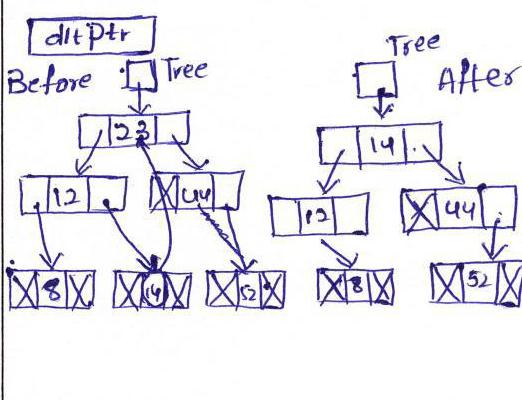 dltPtr
Before Tree
23
12 44
8 14 52
Tree
After
14
12 44
8 52